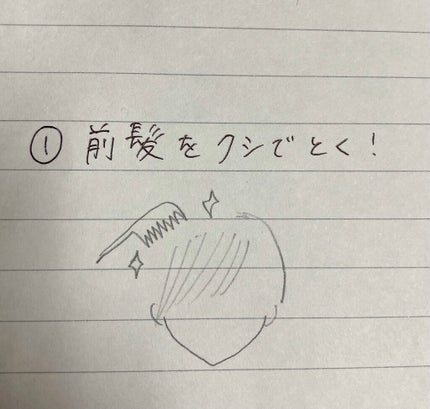 ① 前髪をクシでとく!